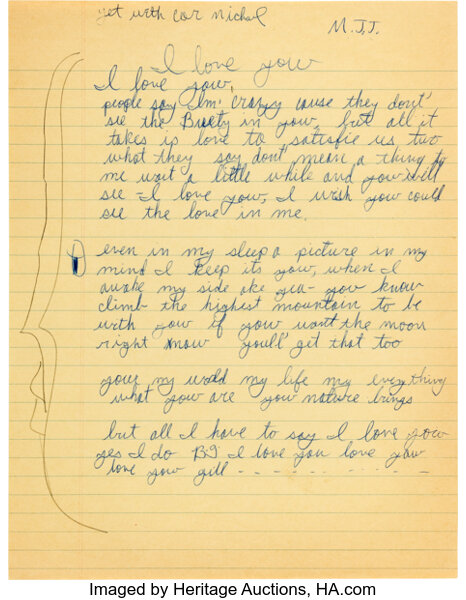 get with car Michael
M.J.J.
I love yow
I love yow,
people say I'm' crazy cause they dont'
see the Buety in yow, but all it
takes is love to satisfie us two
what they say dont' mean a thing to
me wait a little while and yow will
see I love yow, I wish yow could
see the love in me.
even in my sleep a picture in my
mind I keep its yow, when I
awake my side ake yea- yow know
climb the highest mountain to be
with yow if yow want the moon
right now youll' get that too
your my world my life my everything
what yow are yow nature brings
but all I have to say I love yow
yes I do I love you love yow
love yow gill - - - - - - - - - -
Imaged by Heritage Auctions, HA.com